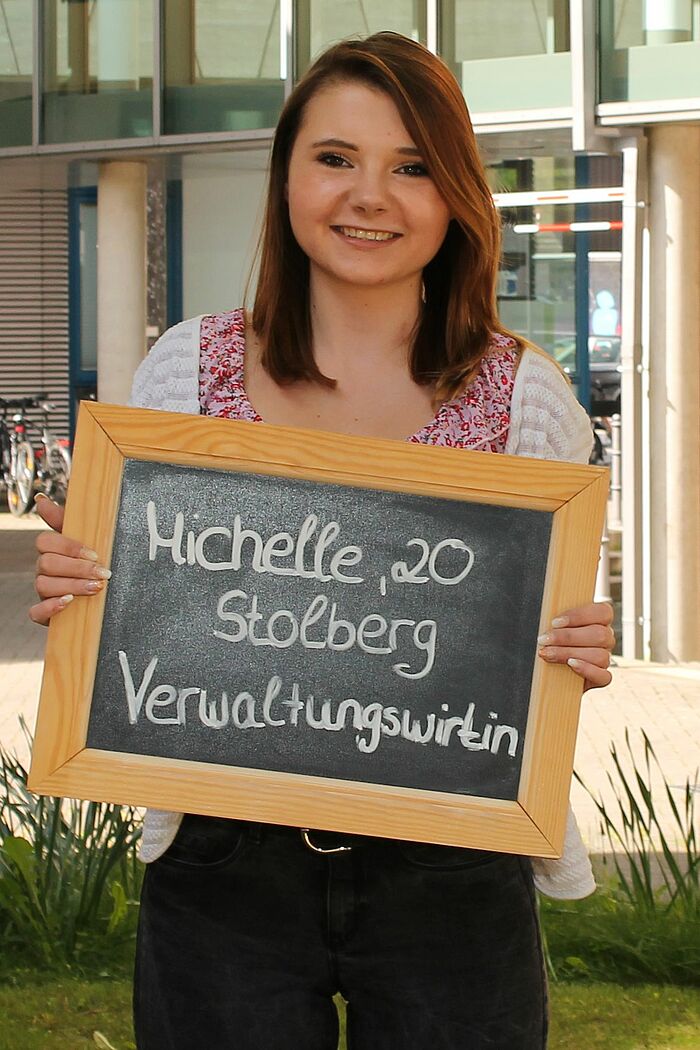 Michelle, 20
Stolberg
Verwaltungswirtin